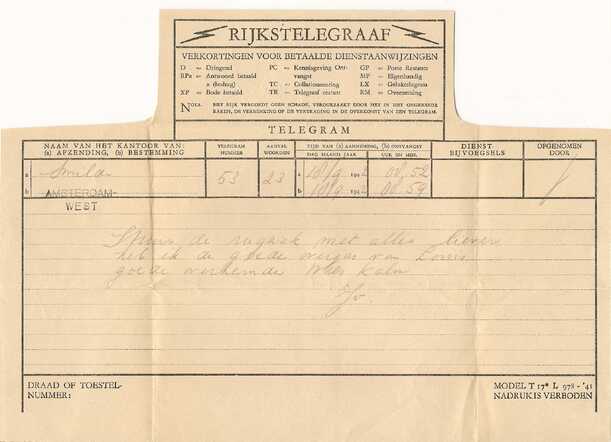 RIJKSTELEGRAAF
VERKORTINGEN VOOR BETAALDE DIENSTAANWIJZINGEN
D = Dringend PC = Kennisgeving Ont- GP = Poste Restante
RPx = Antwoord betaald vangst MP = Eigenhandig
x (bedrag) TC = Collationneering LX = Gelukstelegram
XP = Bode betaald TR = Telegraaf restant RM = Overseining
NOTA. HET RIJK VERGOEDT GEEN SCHADE, VEROORZAAKT DOOR HET IN HET ONGEREEDE
RAKEN, DE VERMINKING OF DE VERTRAGING IN DE OVERKOMST VAN EEN TELEGRAM.
TELEGRAM
NAAM VAN HET KANTOOR VAN (a) AFZENDING, (b) BESTEMMING
TELEGRAM NUMMER
AANTAL WOORDEN
TIJD VAN (a) AANNEMING, (b) ONTVANGST
DAG MAAND JAAR UUR EN MIN.
DIENST- BIJVOEGSELS
OPGENOMEN DOOR
a Smilde 53 23 a 10/9 1942 08,52
b AMSTERDAM- b 10/9 1942 08,59
WEST
Stuur de rugzak met alles liever
heb ik de goede
goede Wees kalm
Jo.
DRAAD OF TOESTEL-
NUMMER:
MODEL T 17* L 978 - '41
NADRUK IS VERBODEN